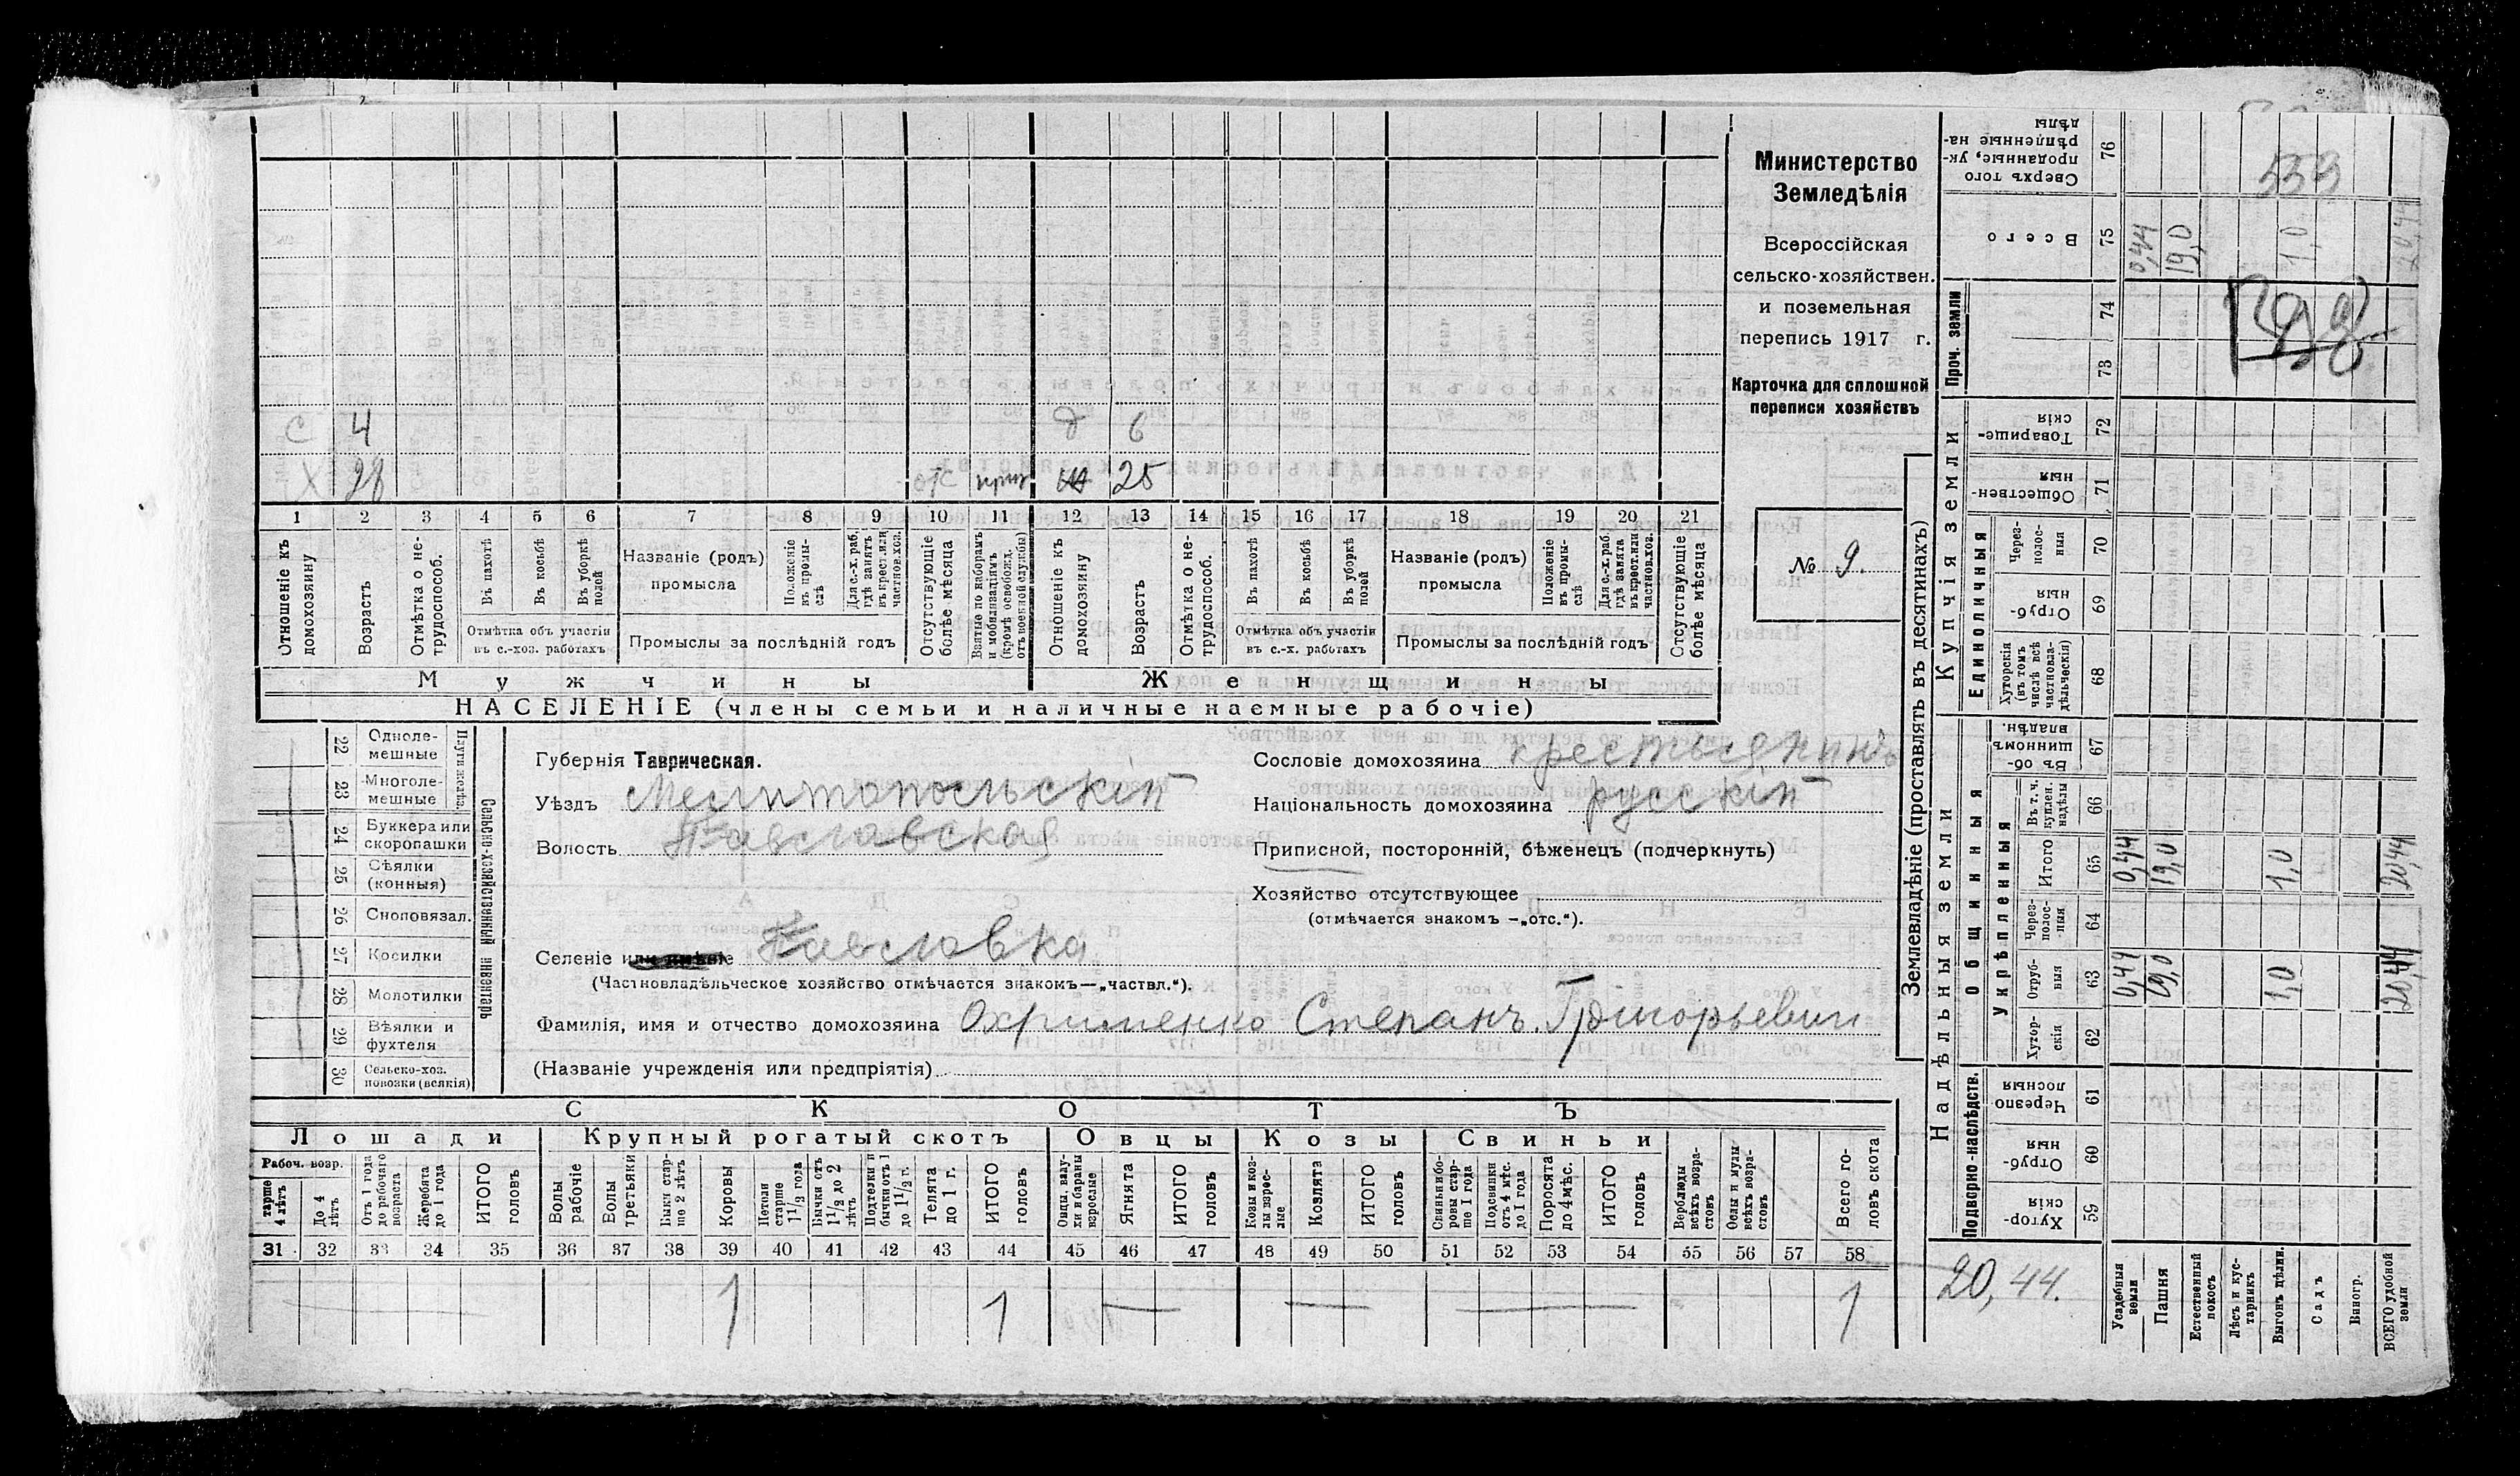 Министерство
Земледѣлія
Всероссійская
сельско-хозяйствен.
и поземельная
перепись 1917 г.
Карточка для сплошной
переписи хозяйствъ
№ 9.
С 4 д 6
Х 28 отс приз 25
1 2 3 4 5 6 7 8 9 10 11 12 13 14 15 16 17 18 19 20 21
Отношеніе къ домохозяину
Возрастъ
Отмѣтка о не-трудоспособ.
Въ пахотѣ
Въ косьбѣ
Въ уборкѣ полей
Отмѣтка объ участіи
въ с.-хоз. работахъ
Названіе (родъ)
промысла
Положеніе въ промы-слѣ
Для с.-х. раб. гдѣ занятъ въ крест. или частнов. хоз.
Промыслы за послѣдній годъ
Отсутствующіе болѣе мѣсяца
Взятые по наборамъ и мобилизаціямъ (кромѣ освобожд. отъ военной службы)
Отношеніе къ домохозяину
Возрастъ
Отмѣтка о не-трудоспособ.
Въ пахотѣ
Въ косьбѣ
Въ уборкѣ полей
Отмѣтка объ участіи
въ с.-х. работахъ
Названіе (родъ)
промысла
Положеніе въ промы-слѣ
Для с.-х. раб. гдѣ занята въ крест. или частнов. хоз.
Промыслы за послѣдній годъ
Отсутствующіе болѣе мѣсяца
Мужчины Женщины
НАСЕЛЕНІЕ (члены семьи и наличные наемные рабочіе)
22 Одноле-мешные
23 Многоле-мешные
24 Буккера или скоропашки
25 Сѣялки (конныя)
26 Сноповязал.
27 Косилки
28 Молотилки
29 Вѣялки и фухтеля
30 Сельско-хоз. повозки (всякія)
Сельско-хозяйственный инвентарь
Губернія Таврическая.
Уѣздъ Мелитопольскій
Волость Павловская
Селеніе или имѣніе Павловка
(Частновладѣльческое хозяйство отмѣчается знакомъ—„частвл.“).
Фамилія, имя и отчество домохозяина Охрименко Степанъ Григорьевич
(Названіе учрежденія или предпріятія)
Сословіе домохозяина крестьянинъ
Національность домохозяина русскій
Приписной, посторонній, бѣженецъ (подчеркнуть)
Хозяйство отсутствующее
(отмѣчается знакомъ —„отс.“).
СКОТЪ
Лошади Крупный рогатый скотъ Овцы Козы Свиньи
Рабоч. возр.
старше 4 лѣтъ
До 4 лѣтъ
Отъ 1 года до рабочаго возраста
Жеребята до 1 года
ИТОГО головъ
Волы рабочіе
Волы третьяки
Быки стар-ше 2 лѣтъ
Коровы
Нетели старше 1 1/2 года
Бычки отъ 1 1/2 до 2 лѣтъ
Подтелки и бычки отъ 1 до 1 1/2 г.
Телята до 1 г.
ИТОГО головъ
Овцы, валу-хи и бараны взрослые
Ягнята
ИТОГО головъ
Козы и коз-лы взрос-лые
Козлята
ИТОГО головъ
Свиньи и бо-ровы стар-ше 1 года
Подсвинки отъ 4 мѣс. до 1 года
Поросята до 4 мѣс.
ИТОГО головъ
Верблюды всѣхъ возра-стовъ
Ослы и мулы всѣхъ возра-стовъ
Всего го-ловъ скота
31 32 33 34 35 36 37 38 39 40 41 42 43 44 45 46 47 48 49 50 51 52 53 54 55 56 57 58
1 1 — — — 1
Землевладѣніе (проставлять въ десятинахъ)
Сверхъ того проданные, ук-рѣпленные на-дѣлы 76 553
Всего 75 0,44 19,0 1,0 20,44
Проч. земли 74
73
Купчія земли
Товарище-скія 72
Обществен-ныя 71
Единоличныя
Через-полос-ныя 70
Отруб-ныя 69
Хуторскія (въ томъ числѣ всѣ частновла-дѣльческія) 68
Надѣльныя земли
Общинныя
Въ об-щинномъ владѣн. 67
Укрѣпленныя
Въ т. ч. куплен. надѣлы 66
Итого 65 0,44 19,0 1,0 20,44
Через-полос-ныя 64
Отруб-ныя 63 0,44 19,0 1,0 20,44
Хутор-скія 62
Подворно-наслѣдств.
Черезпо-лосныя 61
Отруб-ныя 60
Хутор-скія 59
20,44.
Усадебныя земли
Пашня
Естественный покосъ
Лѣсъ и кус-тарникъ
Выгонъ дѣлим.
Садъ
Виногр.
ВСЕГО удобной земли